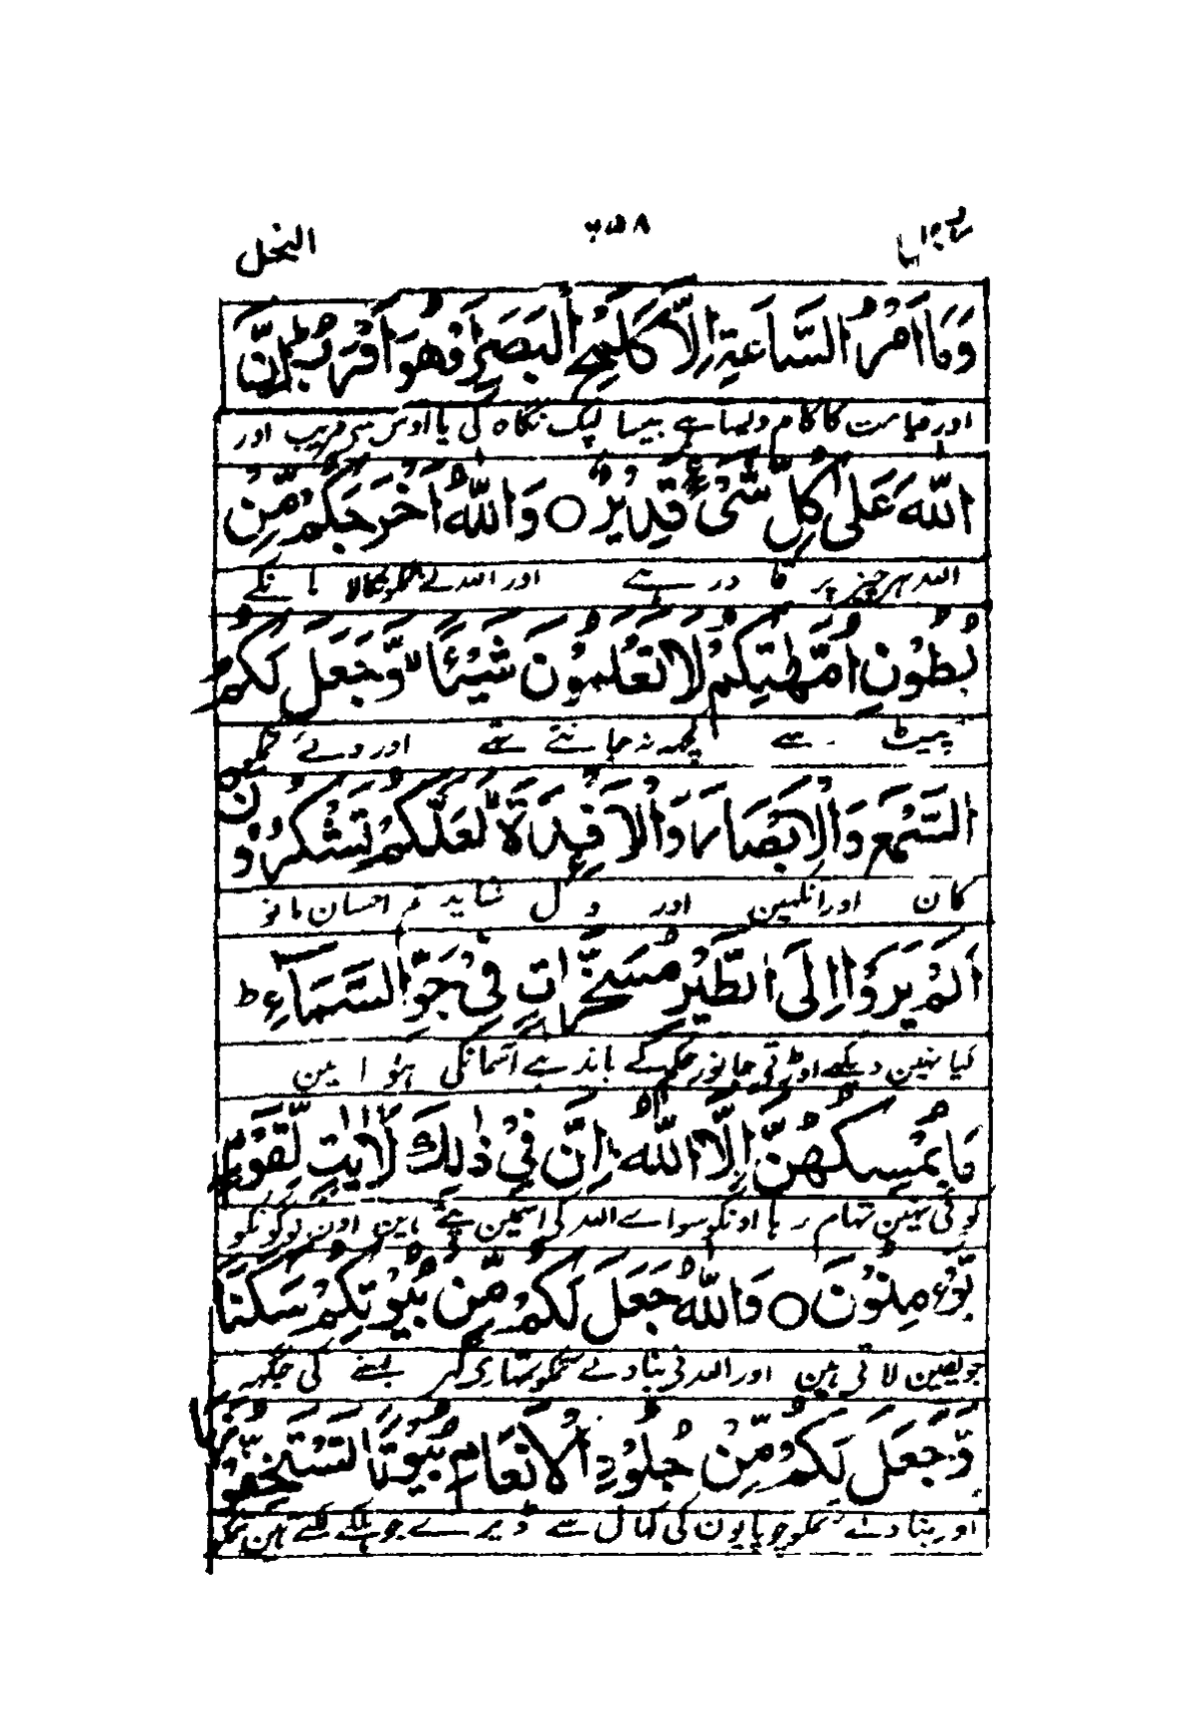 ربما ۱۴ ۴۵۸ النحل
وَمَا اَمْرُ السَّاعَةِ اِلَّا كَلَمْحِ الْبَصَرِ اَوْ هُوَ اَقْرَبُ ط اِنَّ
اور قیامت کا کام ویسا ہے جیسا لپک نگاہ کی یا اوس سی قریب اور
اللّٰهَ عَلٰى كُلِّ شَىْءٍ قَدِيْرٌ ○ وَاللّٰهُ اَخْرَجَكُمْ مِّنْۢ
اللہ ہر چیز پر قادر ہے اور اللہ نے تمکو نکالا مانکے
بُطُوْنِ اُمَّهٰتِكُمْ لَا تَعْلَمُوْنَ شَيْئًا لا وَّجَعَلَ لَكُمُ
پیٹ سے کچھہ نہ جانتے تھے اور دئے تمکو
السَّمْعَ وَالْاَبْصَارَ وَالْاَفْـِٕدَةَ لا لَعَلَّكُمْ تَشْكُرُوْنَ
کان اور انکہین اور دل شاید تم احسان مانو
اَلَمْ يَرَوْا اِلَى الطَّيْرِ مُسَخَّرَاتٍ فِىْ جَوِّ السَّمَآءِ ط
کیا نہین دیکھے اوڑتی جانور حکم کے باندہے آسمانکی ہوا مین
مَا يُمْسِكُهُنَّ اِلَّا اللّٰهُ ط اِنَّ فِىْ ذٰلِكَ لَاٰيٰتٍ لِّقَوْمٍ
کوئی نہین تہام رہا اونکو سواے اللہ کی اسمین پتے ہین اون لوگونکو
يُّؤْمِنُوْنَ ○ وَاللّٰهُ جَعَلَ لَكُمْ مِّنْۢ بُيُوْتِكُمْ سَكَنًا
جو یقین لاتی ہین اور اللہ نی بنا دئے تمکو تمہاری گہر بسنے کی جگہہ
وَّجَعَلَ لَكُمْ مِّنْ جُلُوْدِ الْاَنْعَامِ بُيُوْتًا تَسْتَخِفُّوْنَهَا
اور بنا دئے تمکو چوپایون کی کہال سے ڈیرے جو ہلکے لگتے ہین تمکو